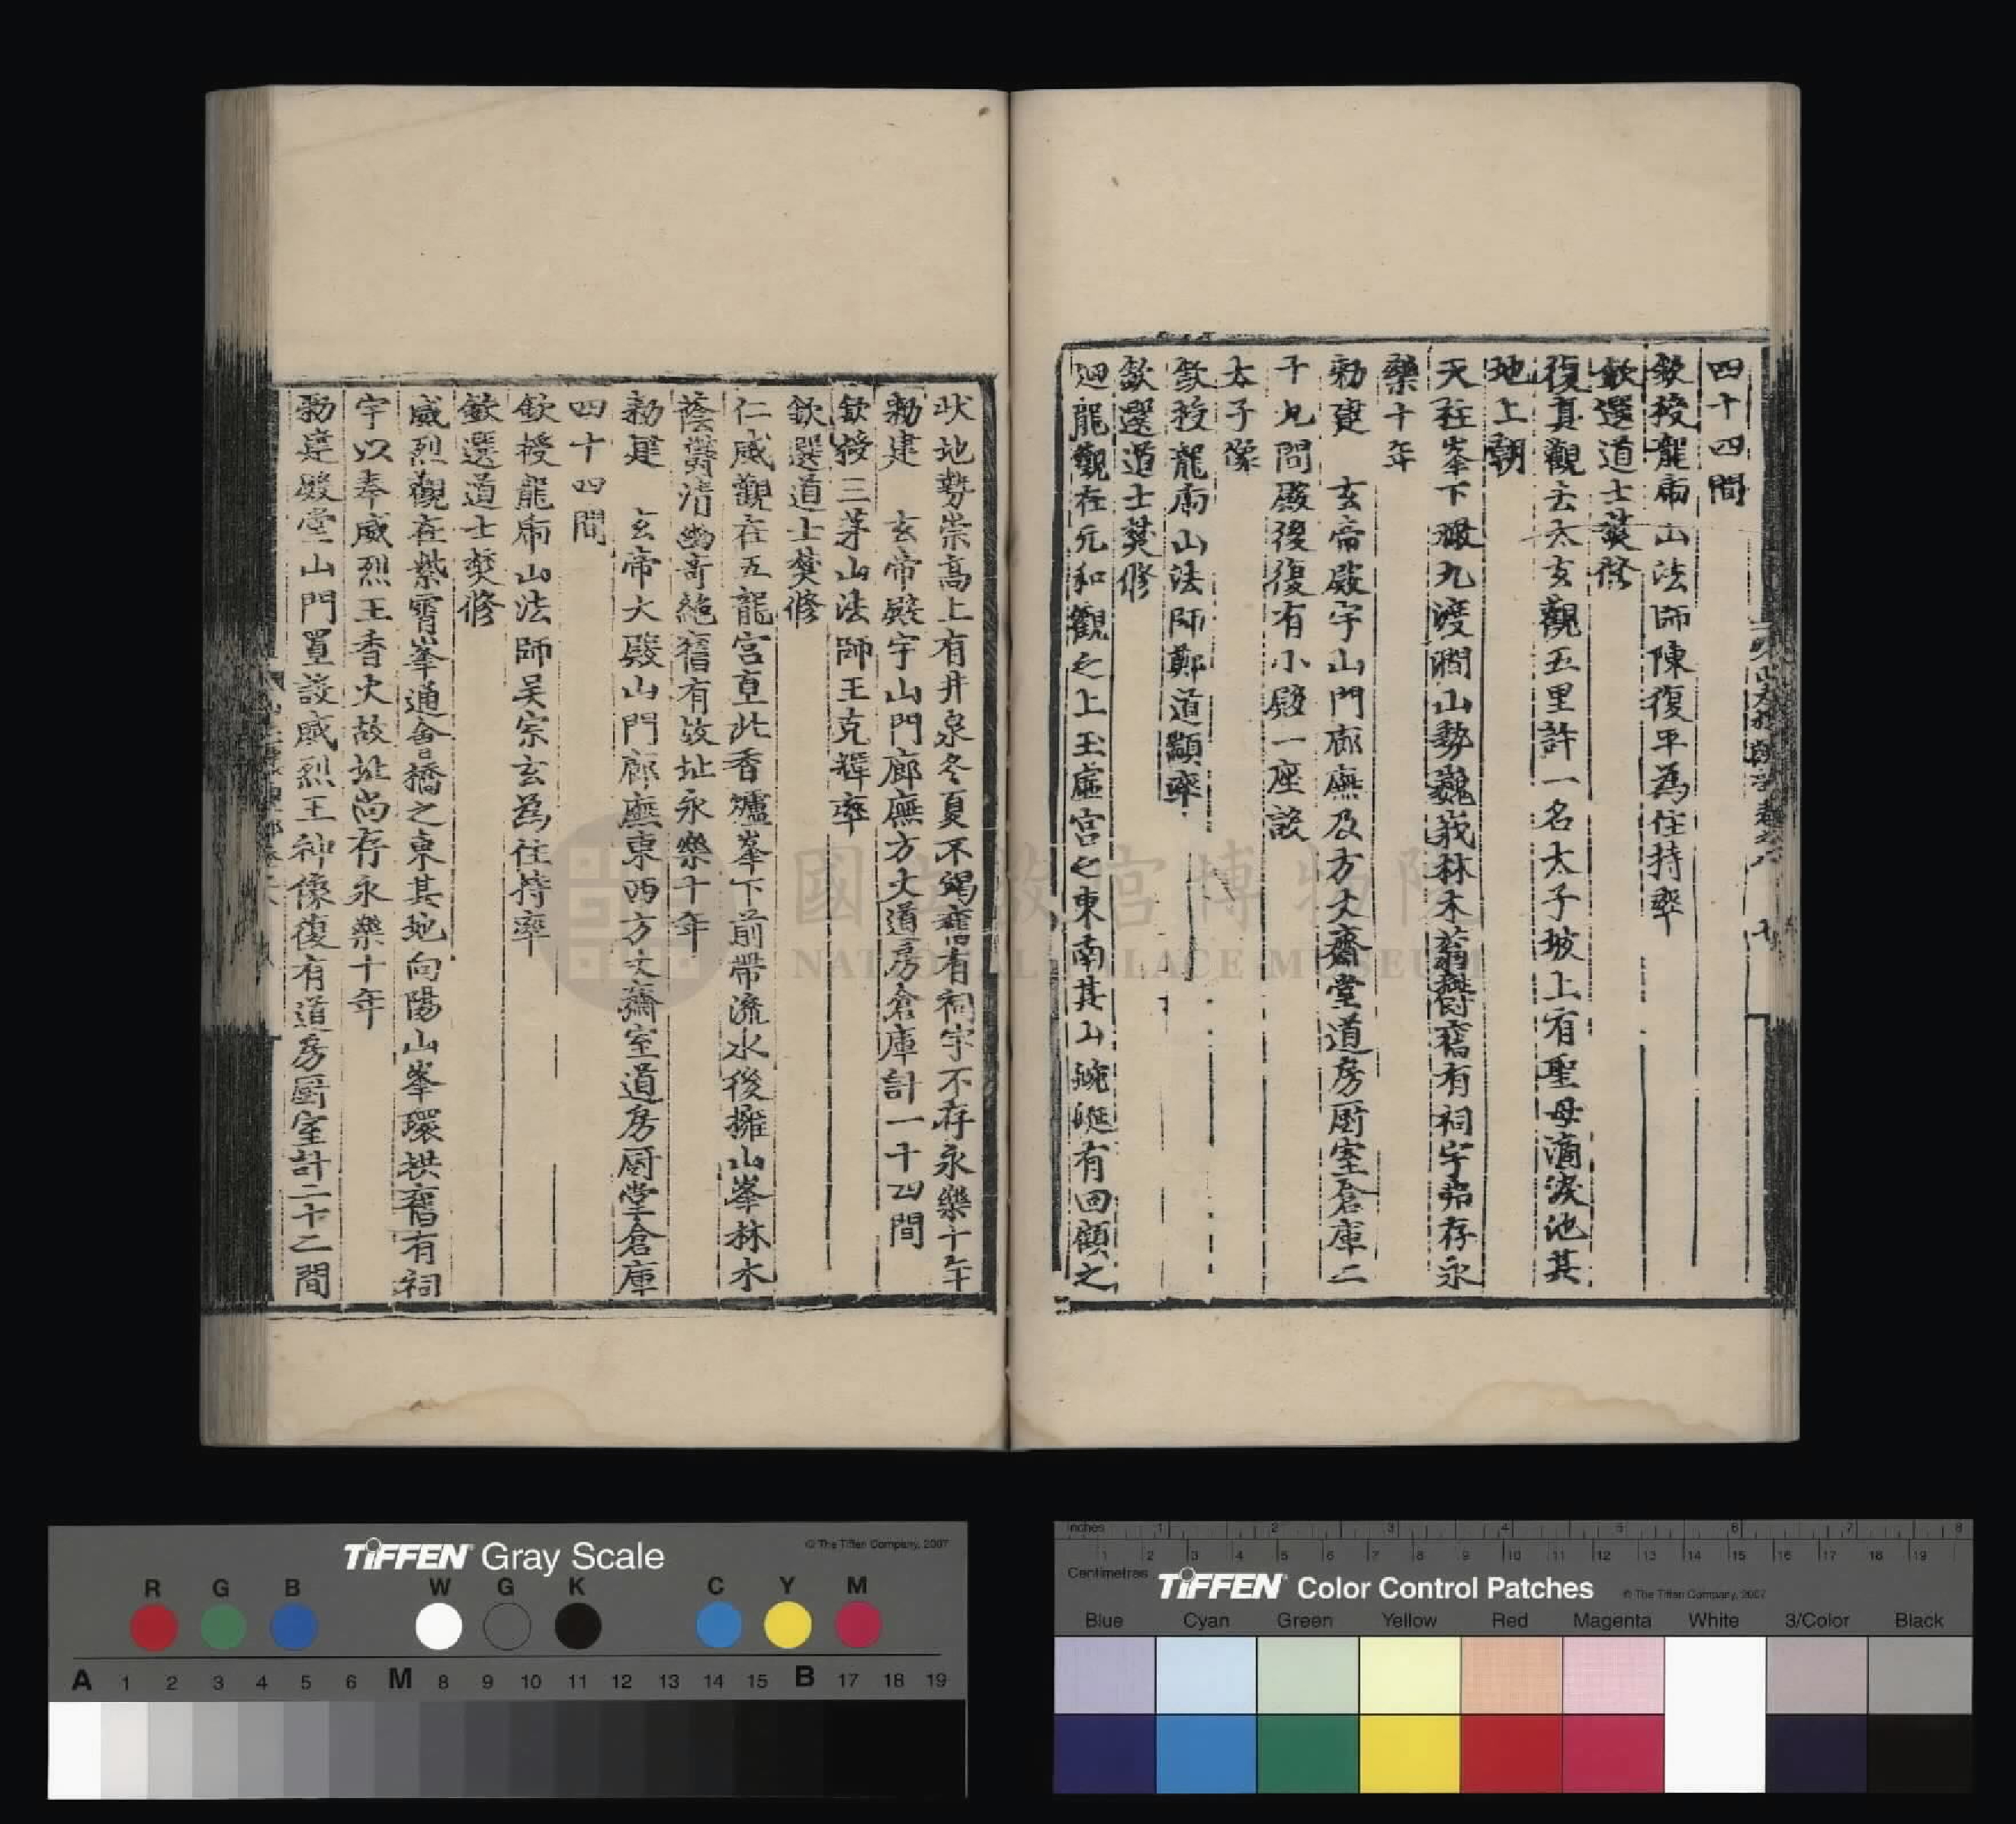 四十四間
欽授龍虎山法師陳復平為住持率
欽選道士焚修
復真觀去太玄觀五里許一名太子坡上有聖母滴淚池其
地上朝
天柱峯下瞰九渡澗山勢巍峩林木蓊欝舊有祠宇弗存永
樂十年
勑建　玄帝殿宇山門廊廡及方丈齋堂道房厨室倉庫二
十九間殿後復有小殿一座設
太子像
欽授龍虎山法師鄭道顯率
欽選道士焚修
迴龍觀在元和觀之上玉虛宮之東南其山蜿蜒有回顧之
狀地勢崇高上有井泉冬夏不竭舊有祠宇不存永樂十年
勑建　玄帝殿宇山門廊廡方丈道房倉庫計一十四間
欽授三茅山法師王克輝率
欽選道士焚修
仁威觀在五龍宮亘此香爐峯下前帶流水後擁山峯林木
蔭欝清幽奇絶舊有故址永樂十年
勑建　玄帝大殿山門廊廡東西方丈齋室道房厨堂倉庫
四十四間
欽授龍虎山法師吴宗玄為住持率
欽選道士焚修
威烈觀在紫霄峯通會橋之東其地向陽山峯環拱舊有祠
宇以奉威烈王香火故址尚存永樂十年
勑建殿堂山門置設威烈王神像復有道房厨室計一十二間
國立故宮博物院
NATIONAL PALACE MUSEUM
TIFFEN Gray Scale
© The Tiffen Company, 2007
R G B W G K C Y M
A 1 2 3 4 5 6 M 8 9 10 11 12 13 14 15 B 17 18 19
Inches 1 2 3 4 5 6 7 8
1 2 3 4 5 6 7 8 9 10 11 12 13 14 15 16 17 18 19
Centimetres
TIFFEN Color Control Patches
© The Tiffen Company, 2007
Blue Cyan Green Yellow Red Magenta White 3/Color Black